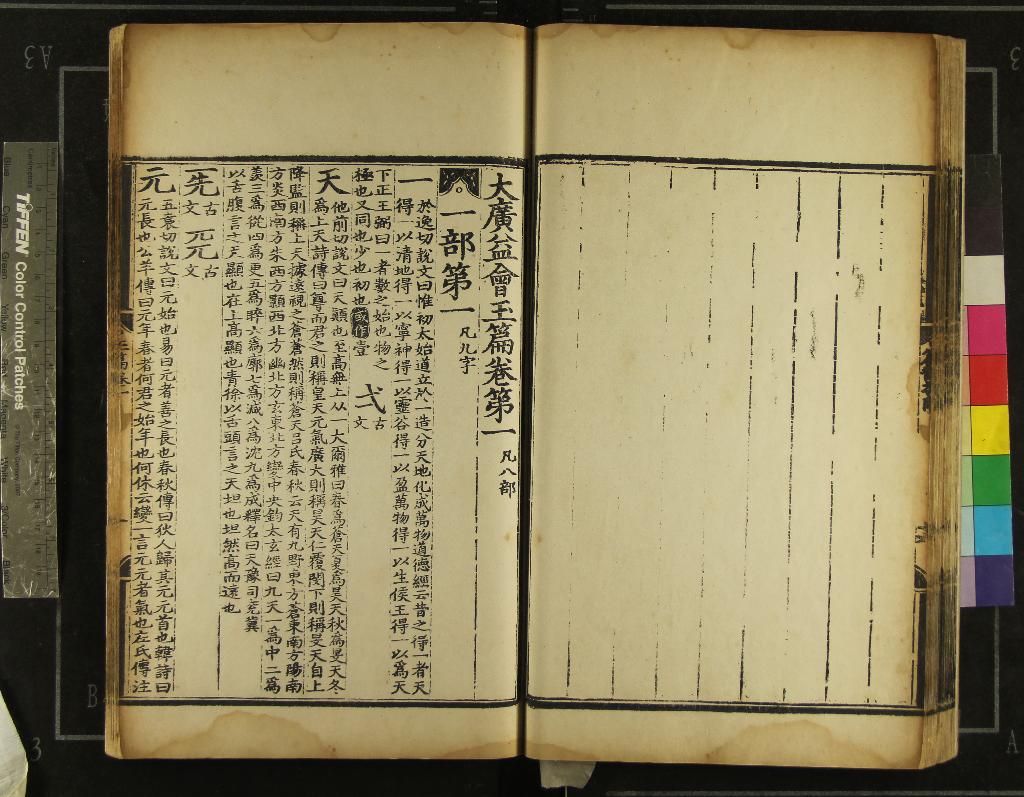 大廣益會玉篇卷第一 凡八部
一部第一 凡九字
一 於逸切說文曰惟初太始道立於一造分天地化成萬物道德經云昔之得一者天
得一以清地得一以寧神得一以靈谷得一以盈萬物得一以生侯王得一以爲天
下正王弼曰一者數之始也物之
極也又同也少也初也或作壹 弌 古文
天 他前切說文曰天顚也至高無上从一大爾雅曰春爲蒼天夏爲昊天秋爲旻天冬
爲上天詩傳曰尊而君之則稱皇天元氣廣大則稱昊天仁覆閔下則稱旻天自上
降監則稱上天據遠視之蒼蒼然則稱蒼天呂氏春秋云天有九野東方蒼東南方陽南
方炎西南方朱西方顥西北方幽北方玄東北方變中央鈞太玄經曰九天一爲中二爲
羨三爲從四爲更五爲睟六爲廓七爲減八爲沈九爲成釋名曰天豫司兖冀
以舌腹言之天顯也在上高顯也青徐以舌頭言之天坦也坦然高而遠也
𠑺 古文 𠀡 古文
元 五袁切說文曰元始也易曰元者善之長也春秋傳曰狄人歸其元元首也韓詩曰
元長也公羊傳曰元年春者何君之始年也何休云變一言元元者氣也左氏傳注
TIFFEN Color Control Patches
Blue
Cyan
Green
Yellow
A3
B
3
A